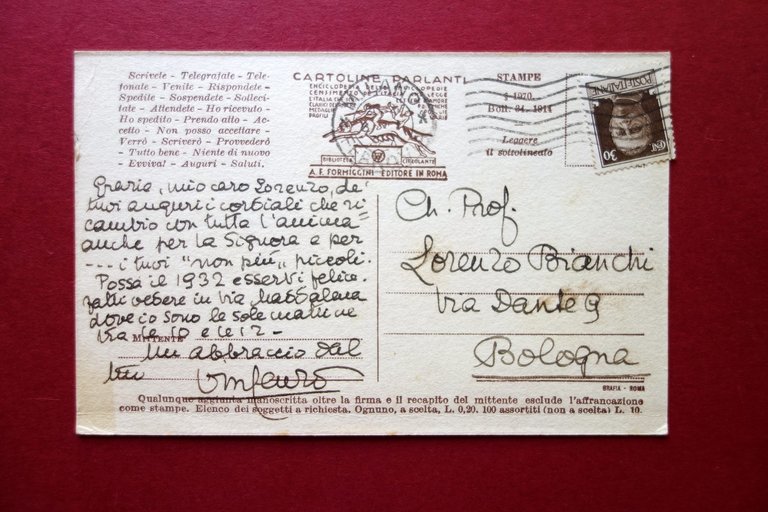 Scrivete - Telegrafate - Tele-
fonate - Venite - Rispondete -
Spedite - Sospendete - Solleci-
tate - Attendete - Ho ricevuto -
Ho spedito - Prendo atto - Ac-
cetto - Non posso accettare -
Verrò - Scriverò - Provvederò
- Tutto bene - Niente di nuovo
- Evviva! - Auguri - Saluti.
CARTOLINE PARLANTI
ENCICLOPEDIA DELLE ENCICLOPEDIE
L'ITALIA CHE
LETTERE D'AMORE
MEDAGLIE
PROFILI
BIBLIOTECA CIRCOLANTE
A. F. FORMIGGINI EDITORE IN ROMA
STAMPE
Leggere
il sottolineato
POSTE ITALIANE
30
CENT
Grazie, mio caro Lorenzo, de'
tuoi auguri cordiali che ri
cambio con tutta l'anima
anche per la Signora e per
--- i tuoi "non più" piccoli.
Possa il 1932 esservi felice.
Fatti vedere in via Maddalena
dove io sono le sole mattine
tra le 10 e le 12 -
MITTENTE
Un abbraccio dal
tuo
Ch. Prof.
Lorenzo Bianchi
Via Dante 9
Bologna
GRAFIA - ROMA
Qualunque aggiunta manoscritta oltre la firma e il recapito del mittente esclude l'affrancazione
come stampe. Elenco dei soggetti a richiesta. Ognuno, a scelta, L. 0,20. 100 assortiti (non a scelta) L. 10.